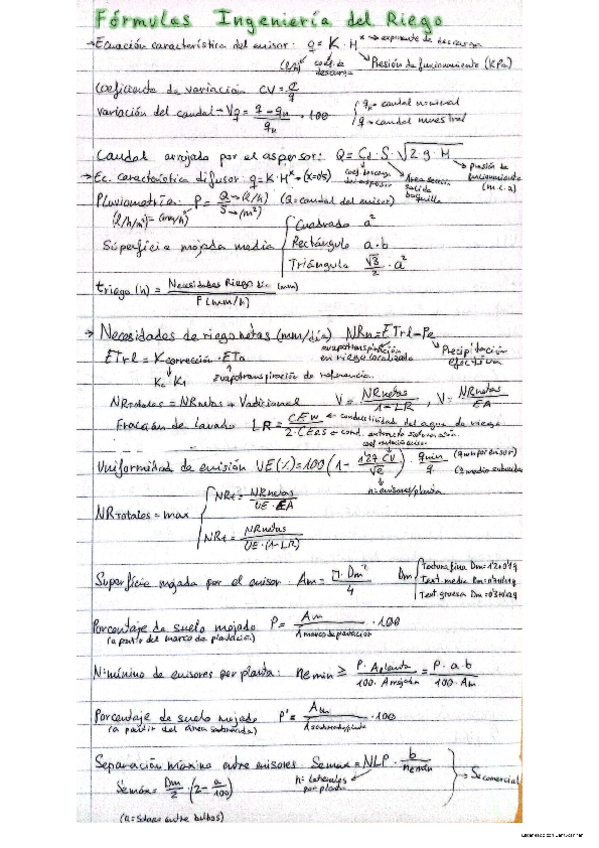 Fórmulas Ingeniería del Riego
→ Ecuación característica del emisor: q = K · H^x → exponente de descarga
(l/h) coef. de descarga Presión de funcionamiento (KPa)
Coeficiente de variación CV =
Variación del caudal → Vq = (q - qn)/qn · 100 { qn = caudal nominal
q = caudal muestral
Caudal arrojado por el aspersor: Q = Cd · S · √2 g · H → presión de funcionamiento (m.c.a)
→ Ec. característica difusor: q = K · H^x → (x=0'5) del aspersor Área sección salida boquilla
Pluviometría: P = Q → (l/h) / S → (m²) (Q = caudal del emisor)
(l/h/m²) = (mm/h)
Superficie mojada media { Cuadrado a²
Rectángulo a · b
Triángulo √3/2 · a²
triego (h) = Necesidades Riego (mm) / P (mm/h)
→ Necesidades de riego netas (mm/día) NRn = ETrl - Pe
evapotranspiración en riego localizado Precipitación efectiva
ETrl = K corrección · ETo
evapotranspiración de referencia.
NRtotales = NRnetas + Vadicional V = NRnetas / 1-LR , V = NRnetas / EA
Fracción de lavado LR = CEw / 2·CEes ← conductividad del agua de riego
cond. extracto saturación
Uniformidad de emisión UE (%) = 100 (1 - 1'27 CV / √e) · qmin / q̄
nº emisores/planta
NRtotales = max { NRt = NRnetas / UE · EA
NRt = NRnetas / UE · (1-LR)
Superficie mojada por el emisor: Am = π · Dm² / 4 Dm { Textura fina Dm = 1'2+0'1q
Text. media
Text. gruesa
Porcentaje de suelo mojado P = Am / 1 marco de plantación · 100
(a partir del marco de plantación)
Nº mínimo de emisores por planta: ne min ≥ P · Aplanta / 100 · Amojada = P · a · b / 100 · Am
Porcentaje de suelo mojado P' = Am · 100
(a partir del área sombreada)
Separación máxima entre emisores Semax = NLP · b / nemin
nº laterales por planta → Se comercial
Semáx = Dm/2 · (2 - a/100)
(a = solape entre bulbos)